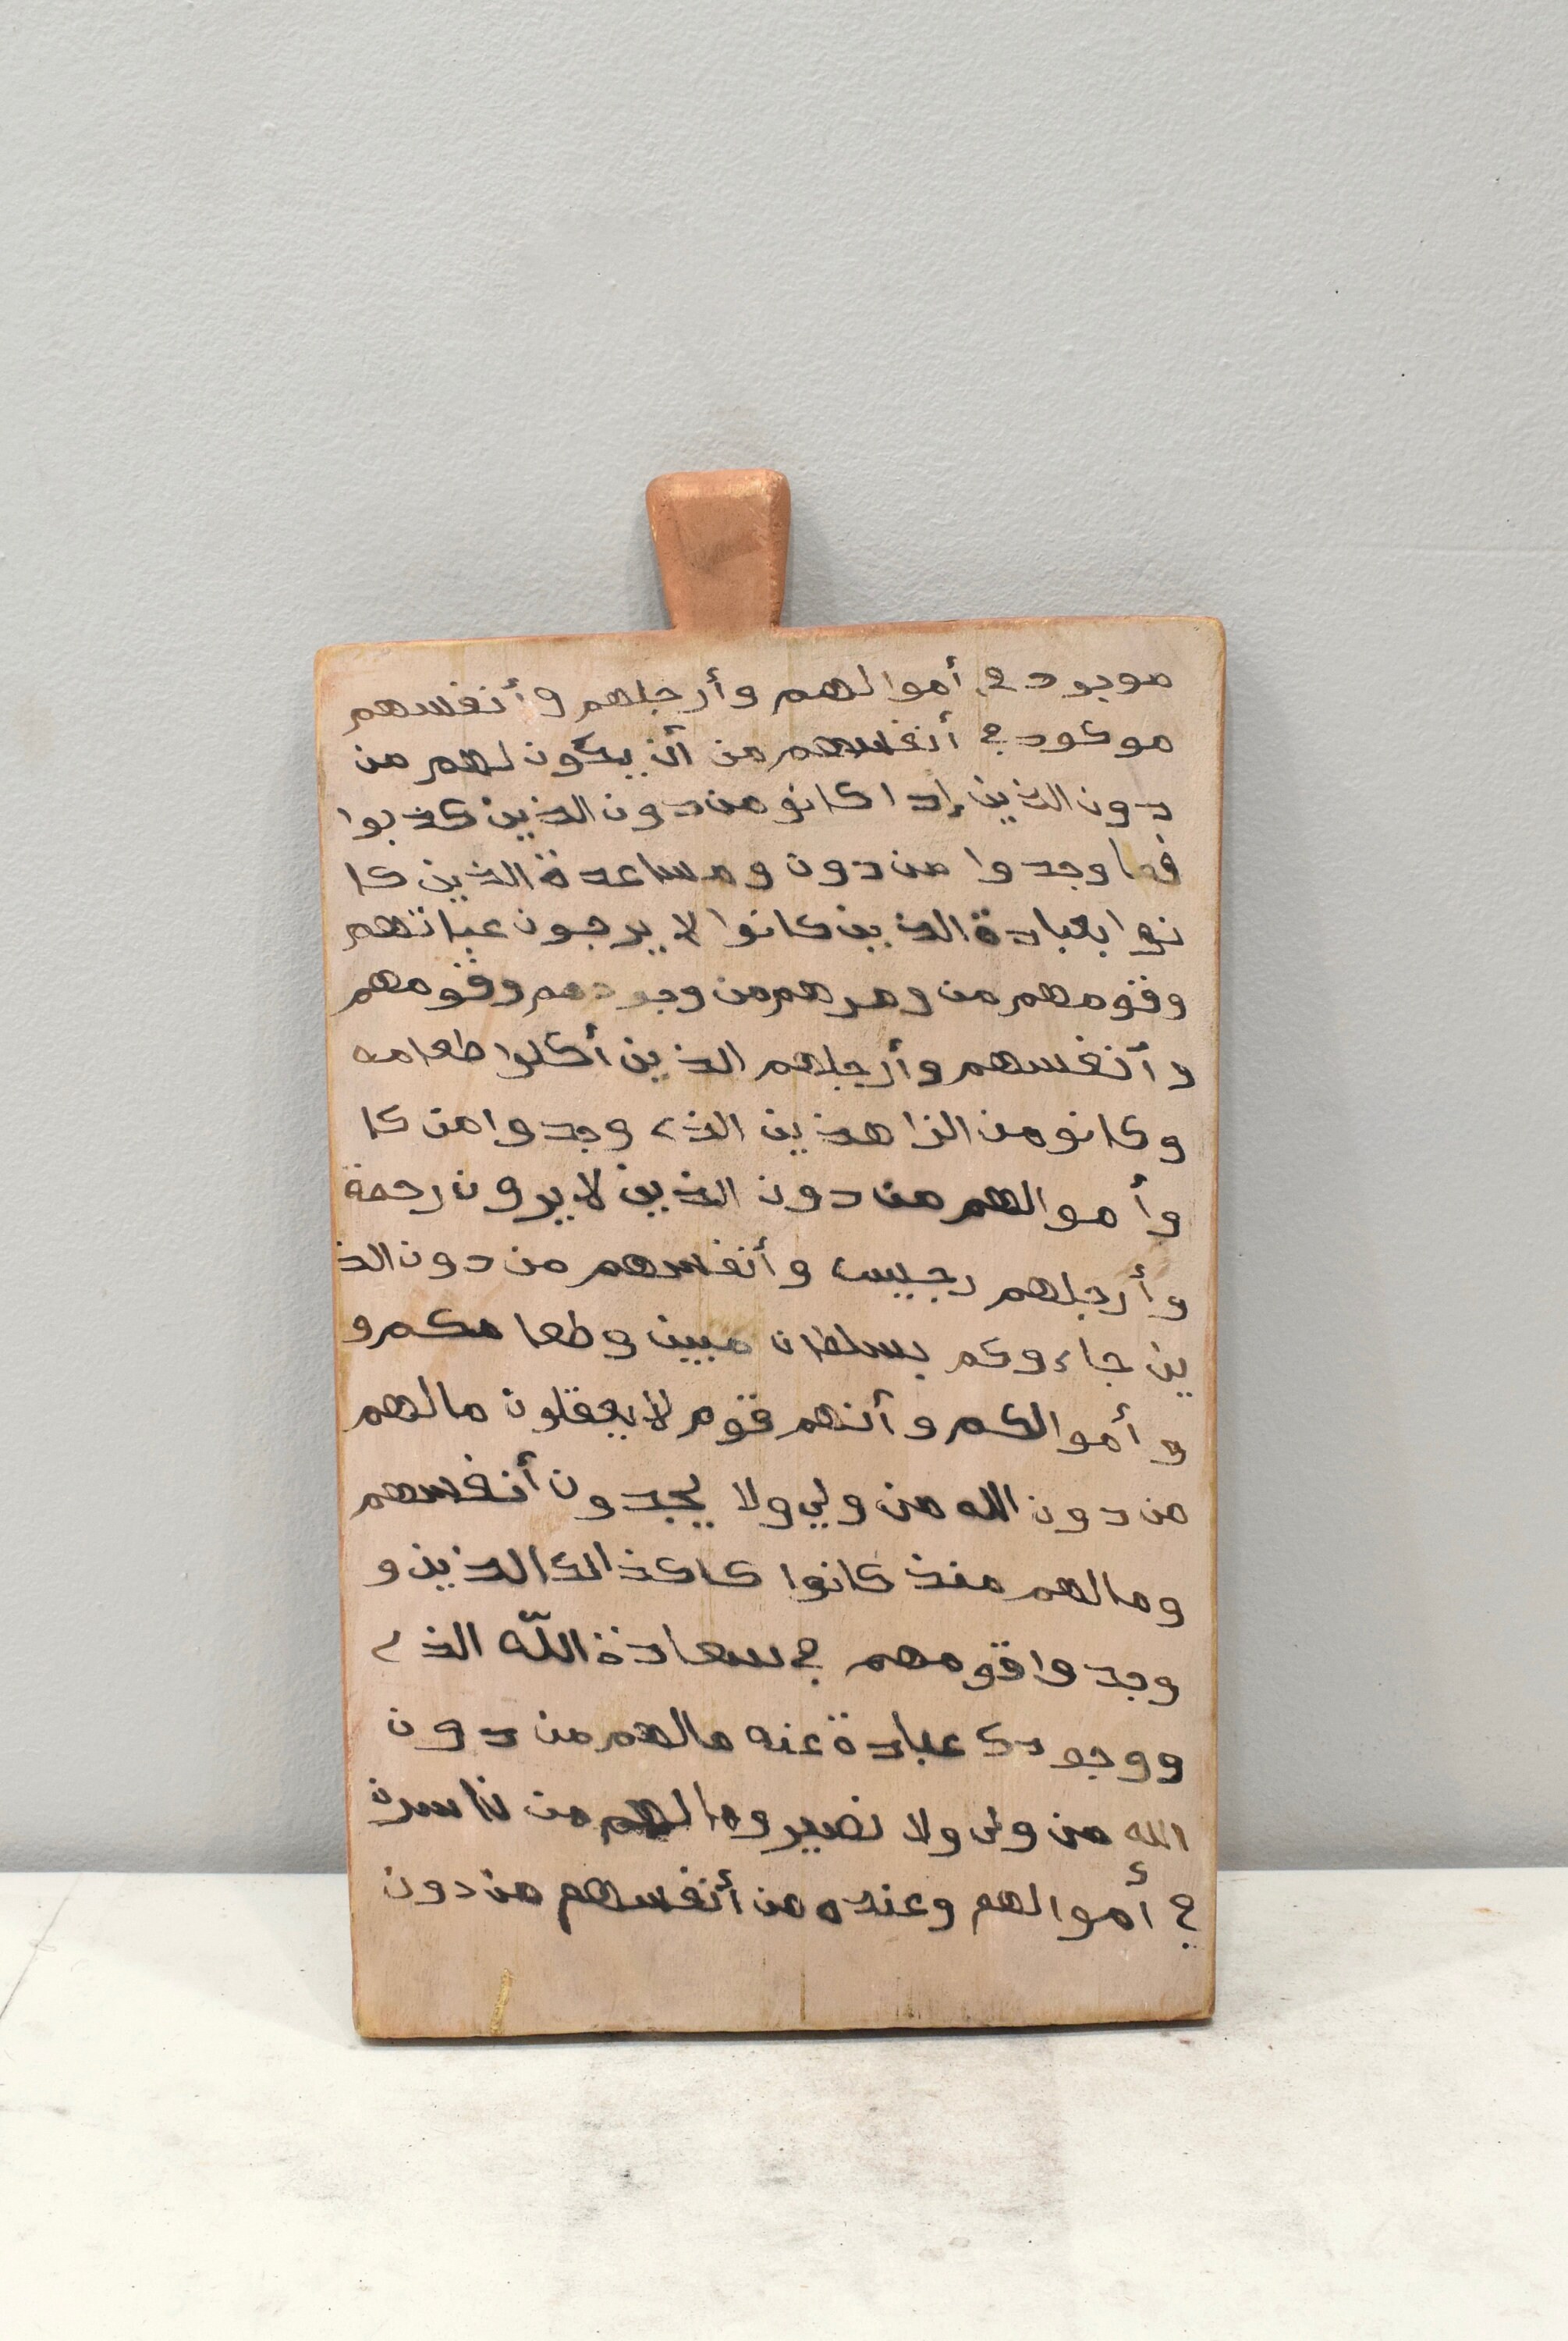 موجود في أموالهم وأرجلهم وأنفسهم
موكود في أنفسهم من أن يكون لهم من
دون الذين إدا كانو من دون الذين كذبوا
فما وجدوا من دون ومساعدة الذين كا
نوا بعبادة الذين كانوا لا يرجون عباتهم
وقومهم من ومرهم من وجودهم وقومهم
وأنفسهم وأرجلهم الذين أكلوا طعامه
وكانو من الزاهذين الذي وجدوا من كا
وأموالهم من دون الذين لا يرون رحمة
وأرجلهم وأنفسهم من دون الذ
ين جاءوكم بسلطان مبين وطعا مكم و
وأموالكم وأنهم قوم لا يعقلون مالهم
من دون الله من ولي ولا يجدون أنفسهم
ومالهم منذ كانوا الذين و
وجدوا قومهم في سعادة الله الذي
ووجودك عبادة عنه مالهم من دون
الله من ولي ولا نصير ومالهم من
في أموالهم وعنده من أنفسهم من دون